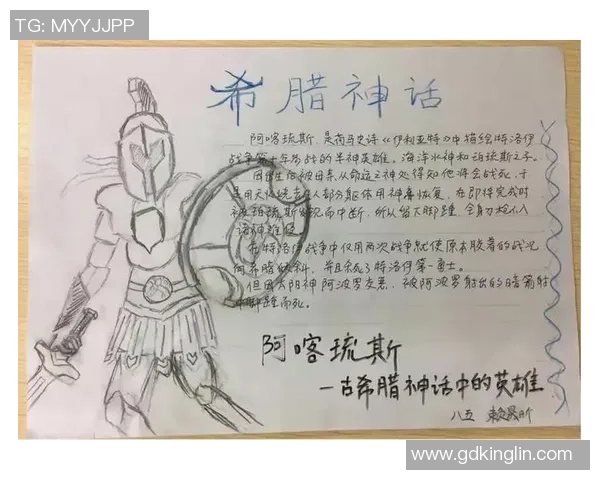 TG: MYYJJPP
希腊神话
阿喀琉斯,是荷马史诗《伊利亚特》中描绘特洛伊
战争第十年参战的半神英雄,海洋女神和珀琉斯之子。
出生后被母亲从命运之神处得知他将会战死,于
是用天火烧去凡人部分躯体用神膏恢复,在即将完成时
被珀琉斯发现而中断,所以留下脚踵,全身刀枪不入
诸神难侵
在特洛伊战争中仅用两次战争就使原本胶着的战况
向希腊倾斜,并且杀死了特洛伊第一勇士。
但因太阳神阿波罗, 被阿波罗射出的暗箭射
中脚踵而死。
阿喀琉斯
—古希腊神话中的英雄
八五
www.gdkinglin.com